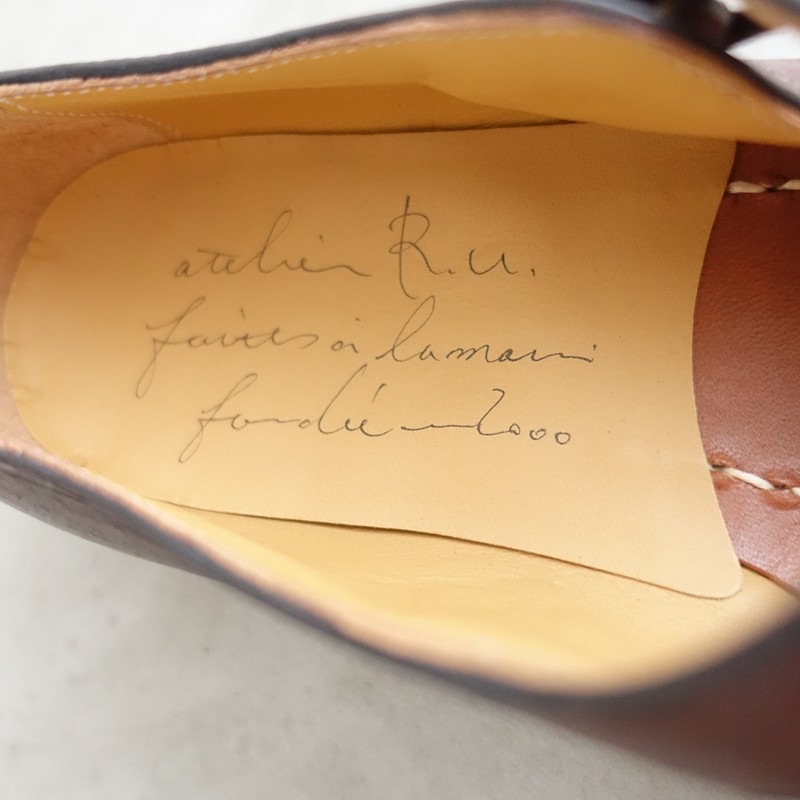 atelier R.U.
faites à la main
fondée en 2000